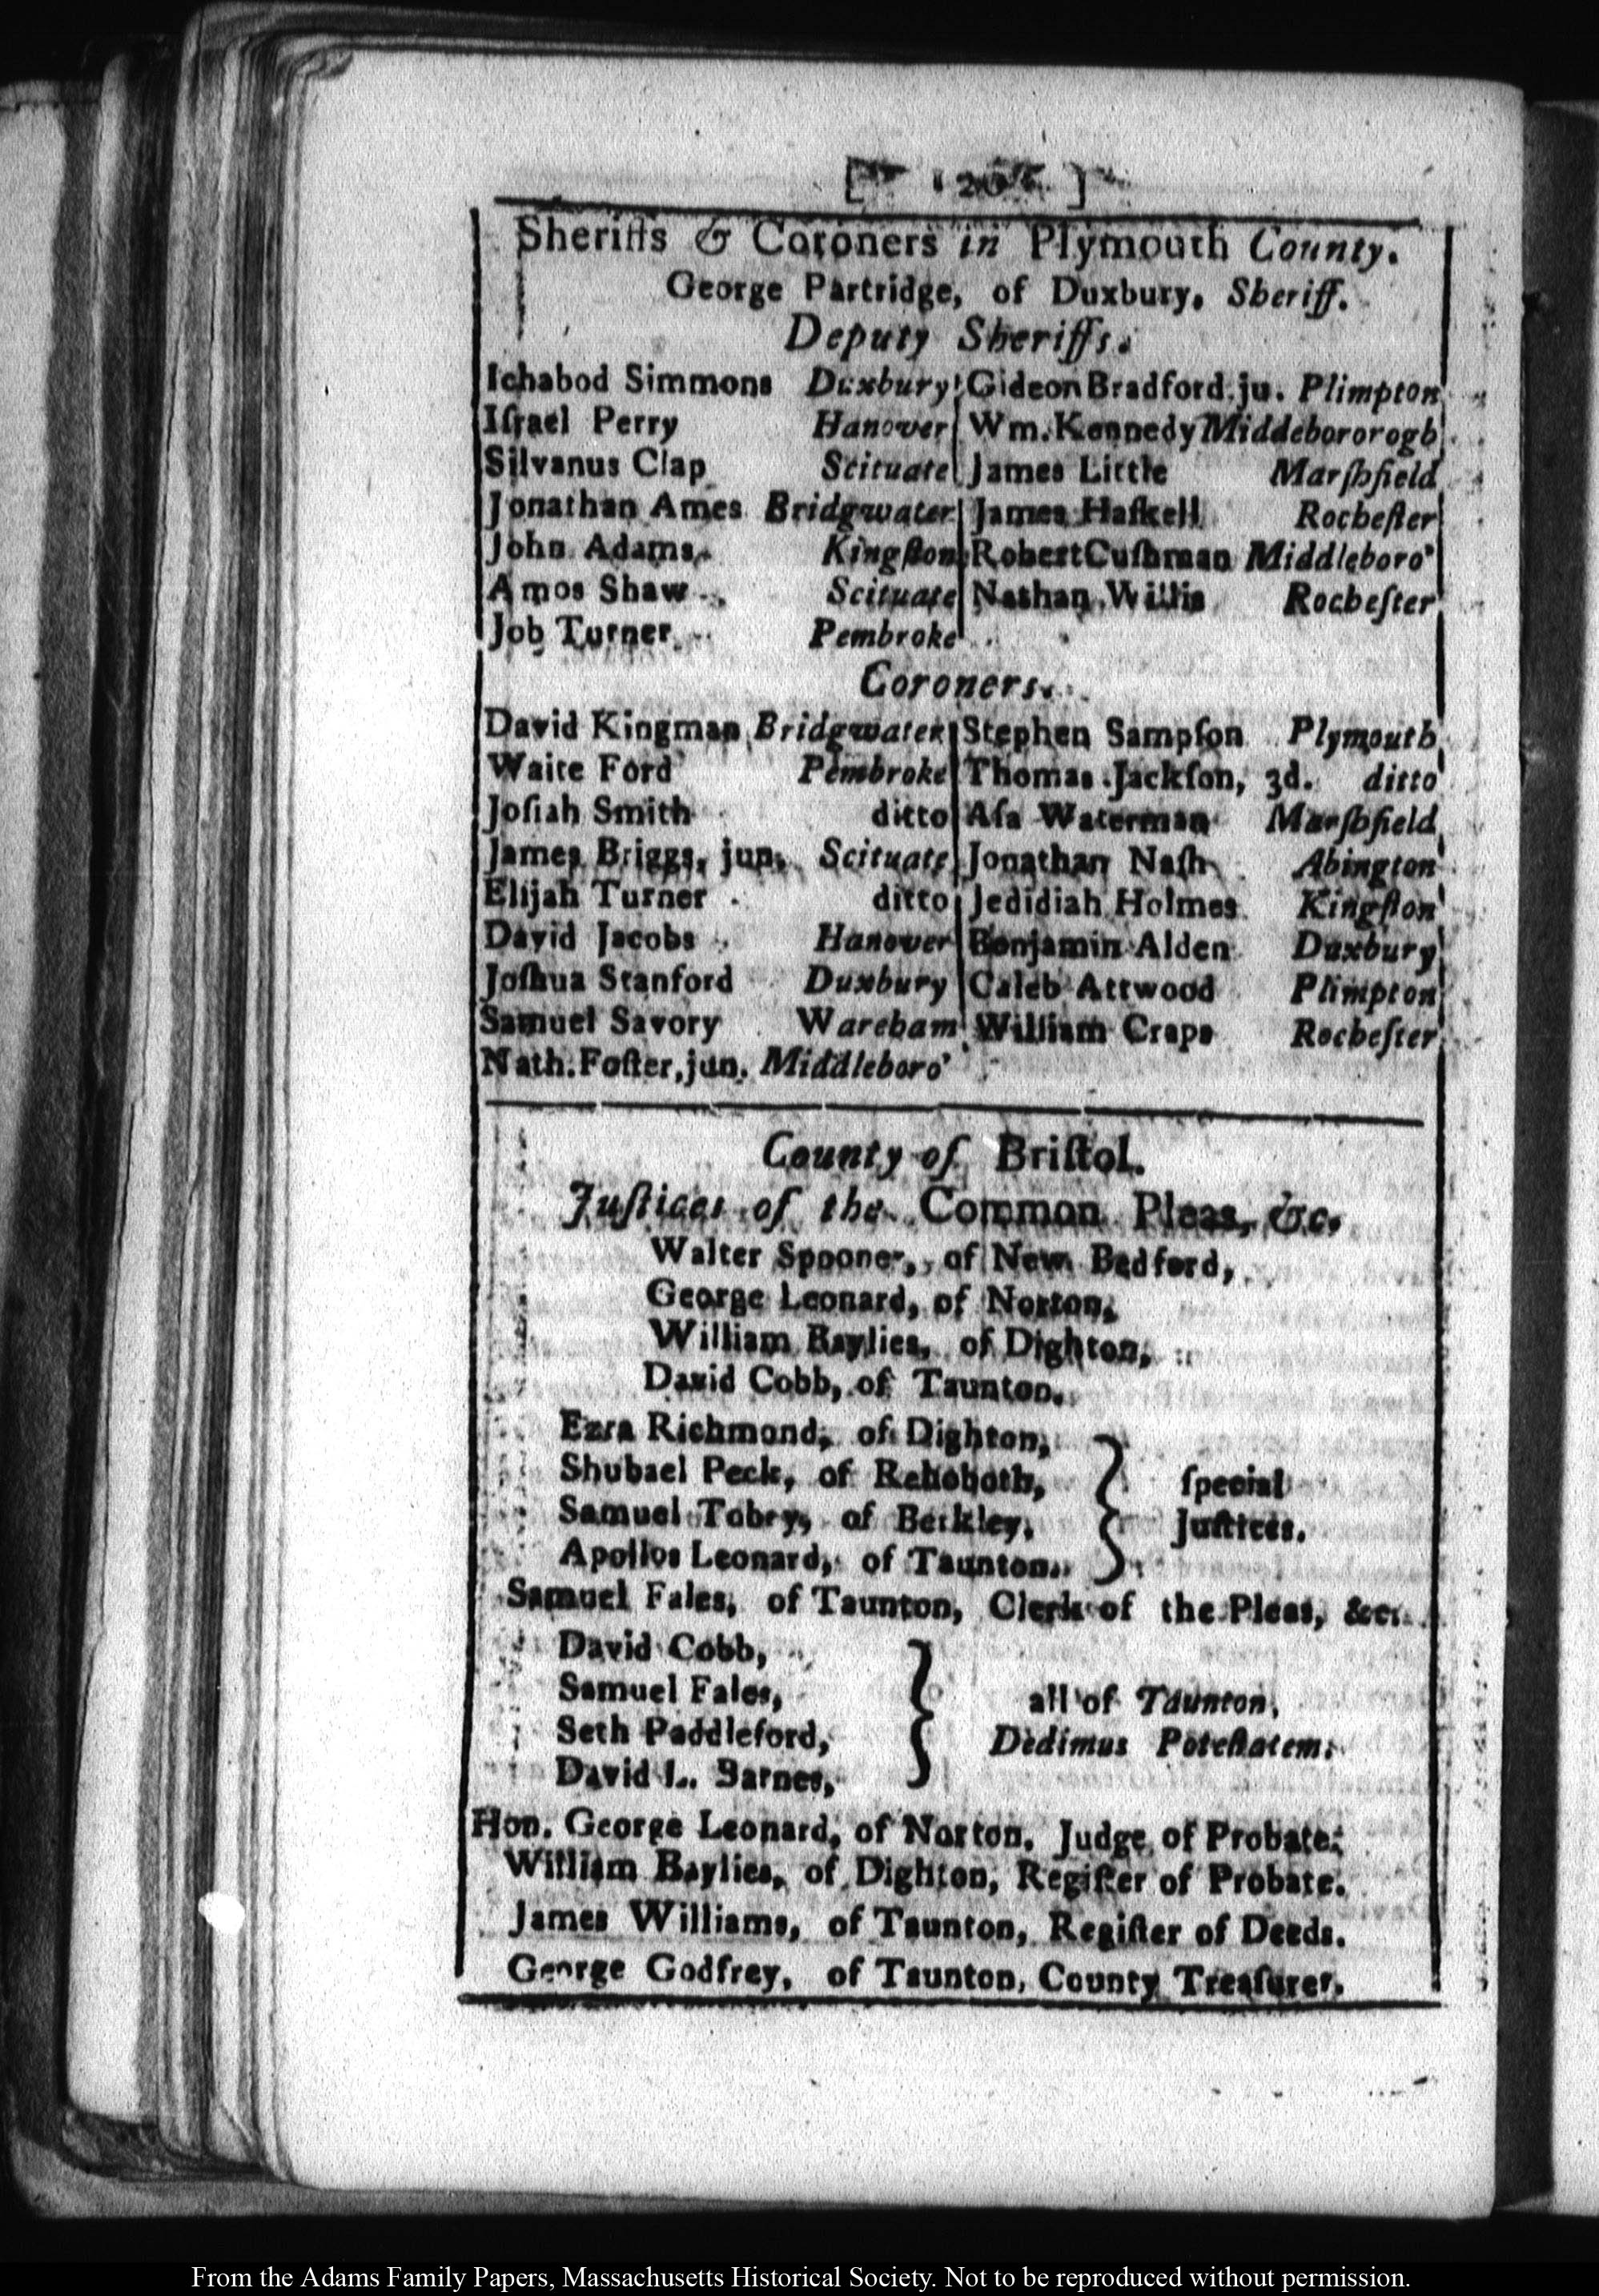 Sheriffs & Coroners in Plymouth County.
George Partridge, of Duxbury, Sheriff.
Deputy Sheriffs.
Ichabod Simmons Duxbury Gideon Bradford, ju. Plimpton
Iſrael Perry Hanover Wm. Kennedy Middebororogh
Silvanus Clap Scituate James Little Marſhfield
Jonathan Ames Bridgwater James Haſkell Rocheſter
John Adams Kingſton Robert Cuſhman Middleboro'
Amos Shaw Scituate Nathan Willis Rocheſter
Job Turner Pembroke
Coroners.
David Kingman Bridgwater Stephen Sampſon Plymouth
Waite Ford Pembroke Thomas Jackſon, 3d. ditto
Joſiah Smith ditto Aſa Waterman Marſhfield
James Briggs, jun. Scituate Jonathan Naſh Abington
Elijah Turner ditto Jedidiah Holmes Kingſton
David Jacobs Hanover Benjamin Alden Duxbury
Joſhua Stanford Duxbury Caleb Attwood Plimpton
Samuel Savory Wareham William Craps Rocheſter
Nath. Foſter, jun. Middleboro'
County of Briſtol.
Juſtices of the Common Pleas, &c.
Walter Spooner, of New Bedford,
George Leonard, of Norton,
William Baylies, of Dighton,
David Cobb, of Taunton.
Ezra Richmond, of Dighton,
Shubael Peck, of Rehoboth, ſpecial
Samuel Tobey, of Berkley, Juſtices.
Apollos Leonard, of Taunton.
Samuel Fales, of Taunton, Clerk of the Pleas, &c.
David Cobb,
Samuel Fales, all of Taunton,
Seth Paddleford, Dedimus Poteſtatem.
David L. Barnes,
Hon. George Leonard, of Norton, Judge of Probate.
William Baylies, of Dighton, Regiſter of Probate.
James Williams, of Taunton, Regiſter of Deeds.
George Godfrey, of Taunton, County Treaſurer.
From the Adams Family Papers, Massachusetts Historical Society. Not to be reproduced without permission.